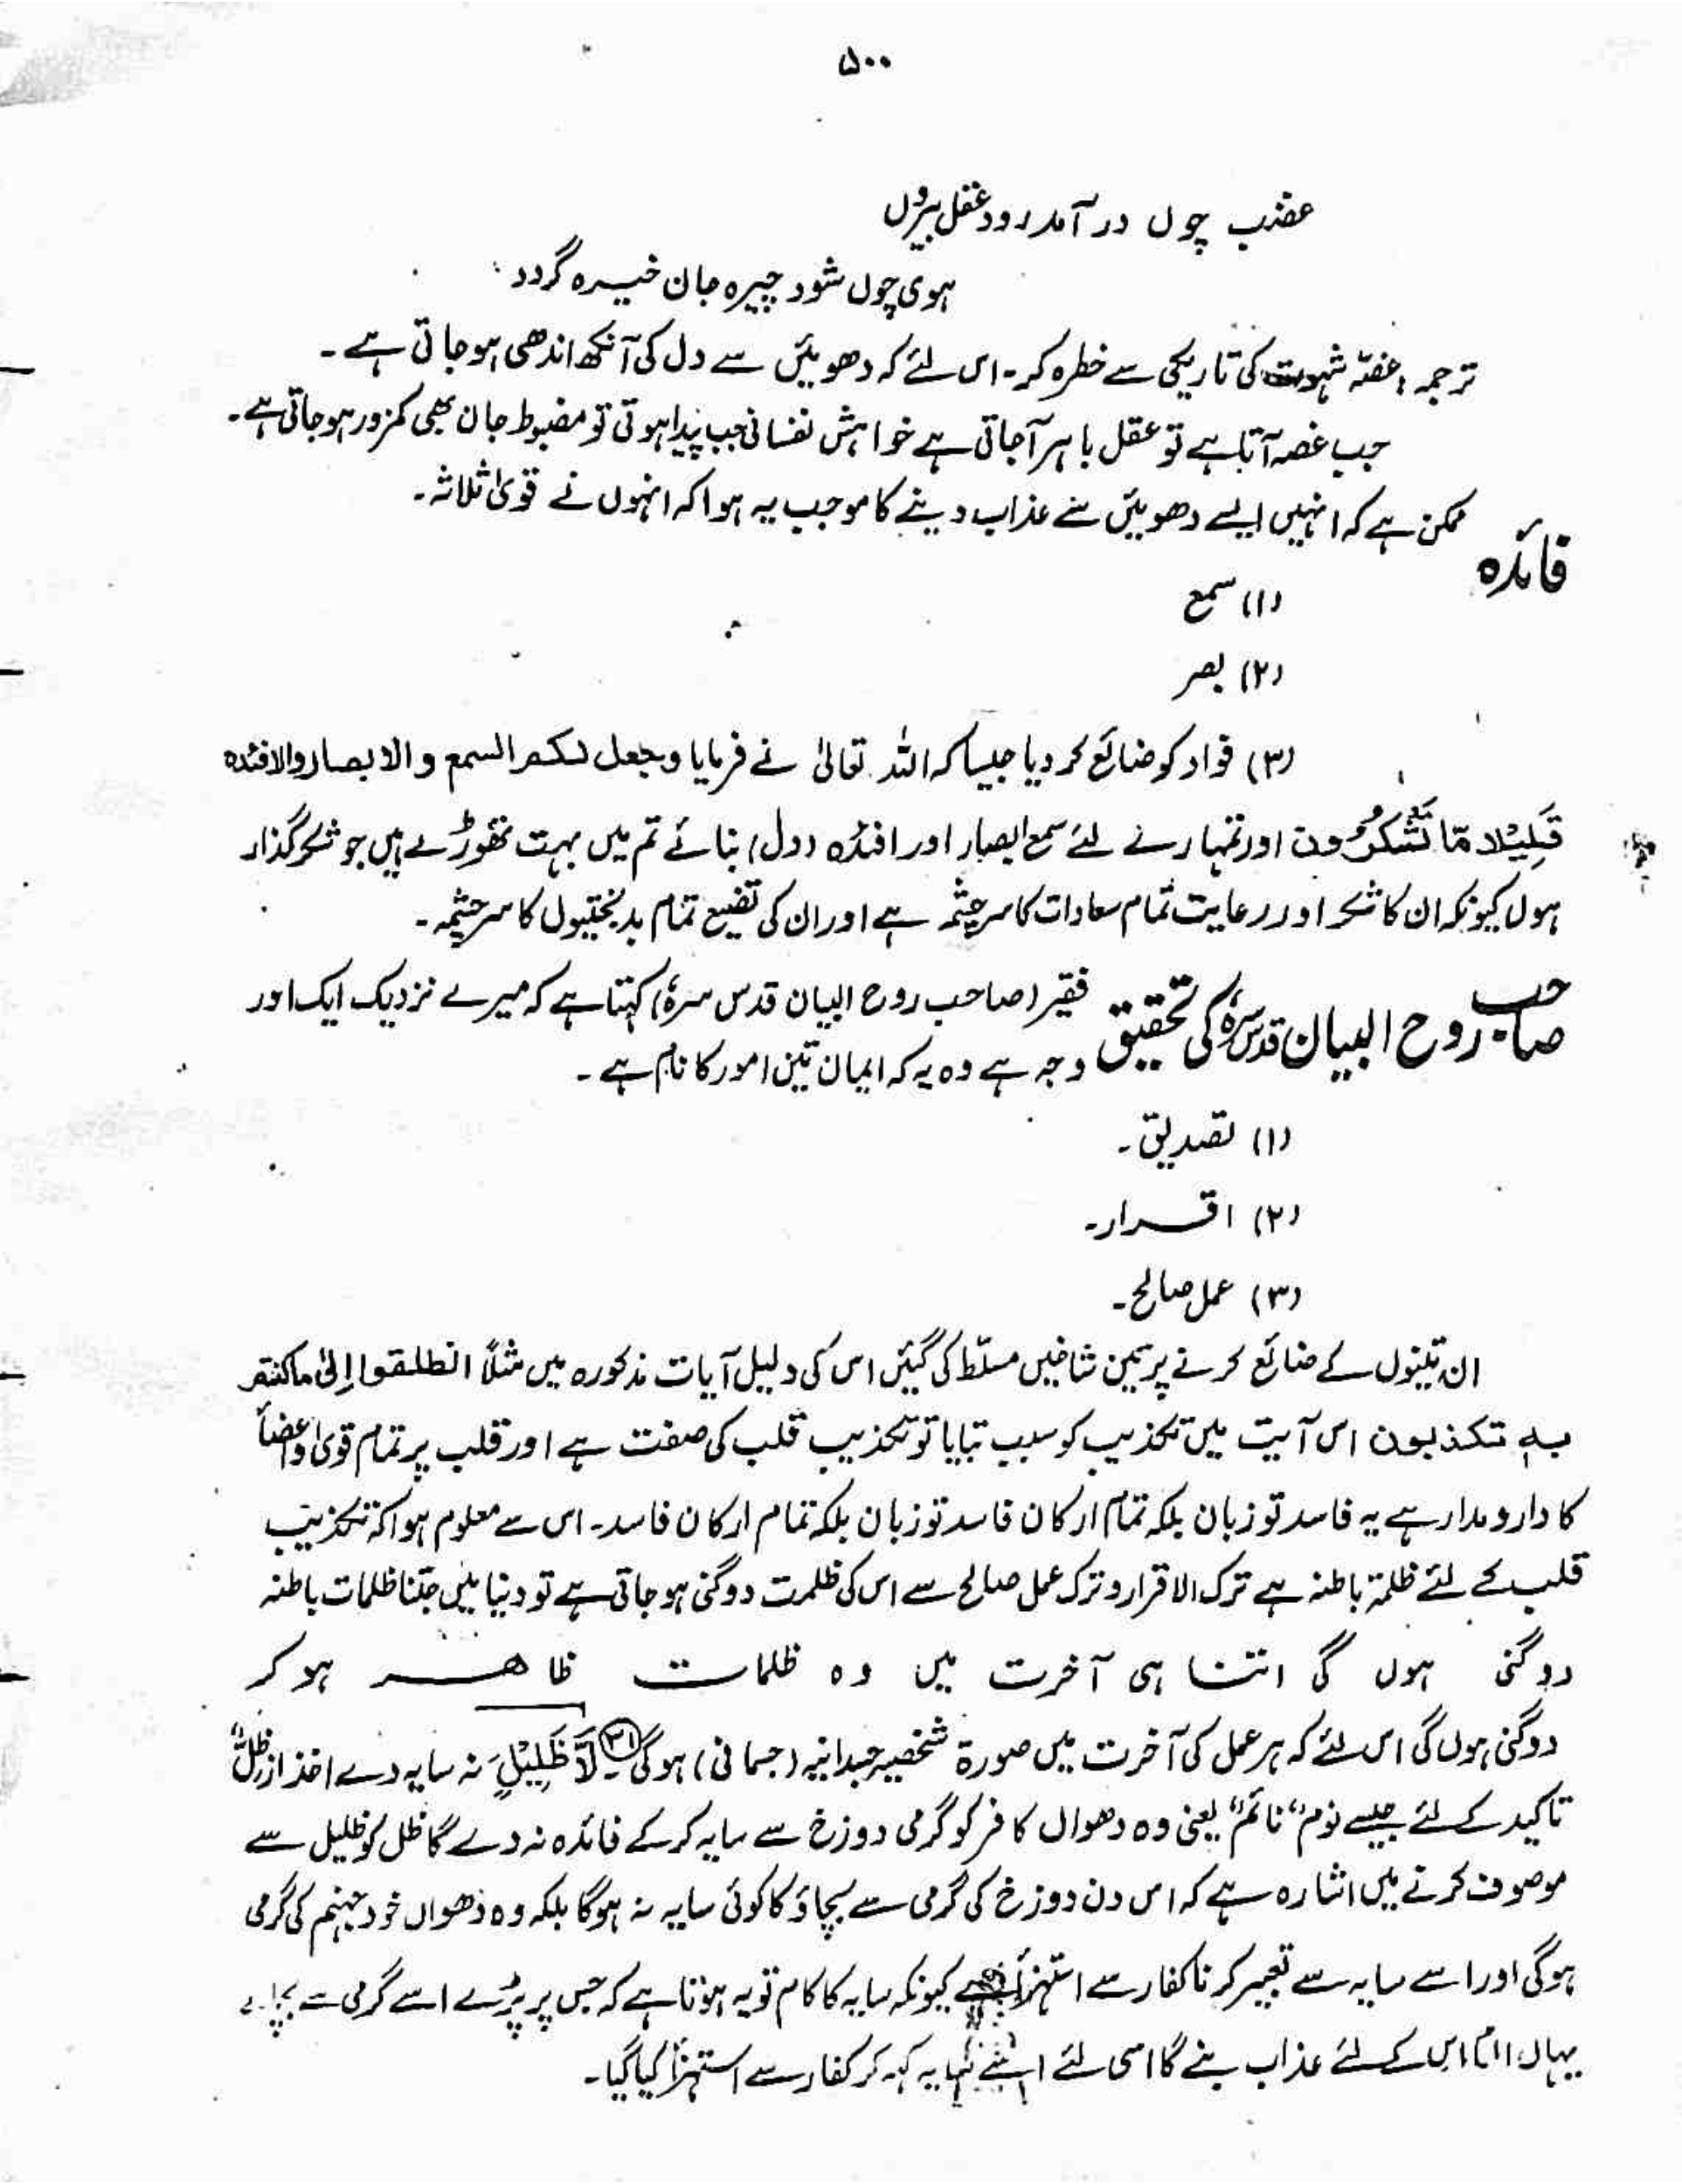 ۵۰۰
عضب چوں در آمد رود عقل بیروں
ہوی چوں شود چیرہ جان خیرہ گردد
ترجمہ: غصّہ شہوت کی تاریکی سے خطرہ کر۔ اس لئے کہ دھوئیں سے دل کی آنکھ اندھی ہو جاتی ہے۔
جب غصہ آتا ہے تو عقل باہر آجاتی ہے خواہش نفسانی جب پیدا ہوتی تو مضبوط جان بھی کمزور ہو جاتی ہے۔
ممکن ہے کہ انہیں ایسے دھوئیں سے عذاب دینے کا موجب یہ ہوا کہ انہوں نے قویٰ ثلاثہ۔
فائدہ
(۱) سمع
(۲) بصر
(۳) فواد کو ضائع کر دیا جیسا کہ اللہ تعالیٰ نے فرمایا وجعل لکم السمع والابصار والافئدہ
قَلِیْلًا مَّا تَشْکُرُوْن اور تمہارے لئے سمع ابصار اور افئدہ (دل) بنائے تم میں بہت تھوڑے ہیں جو شکر گذار
ہوں کیونکہ ان کا شکر اور رعایت تمام سعادات کا سرچشمہ ہے اور ان کی تضییع تمام بدبختیوں کا سرچشمہ۔
صاحب روح البیان قدس سرہٗ کی تحقیق فقیر (صاحب روح البیان قدس سرہٗ) کہتا ہے کہ میرے نزدیک ایک اور
وجہ ہے وہ یہ کہ ایمان تین امور کا نام ہے۔
(۱) تصدیق۔
(۲) اقرار۔
(۳) عمل صالح۔
ان تینوں کے ضائع کرنے پر تین شاخیں مسلّط کی گئیں اس کی دلیل آیات مذکورہ میں مثلاً انطلقوا إلیٰ ماکنتم
بہٖ تکذبون اس آیت میں تکذیب کو سبب بتایا تو تکذیب قلب کی صفت ہے اور قلب پر تمام قویٰ واعضأ
کا دارومدار ہے یہ فاسد تو زبان بلکہ تمام ارکان فاسد تو زبان بلکہ تمام ارکان فاسد۔ اس سے معلوم ہوا کہ تکذیب
قلب کے لئے ظلمۃ باطنہ ہے ترک الاقرار و ترک عمل صالح سے اس کی ظلمت دوگنی ہو جاتی ہے تو دنیا میں جتنا ظلمات باطنہ
دوگنی ہوں گی اتنا ہی آخرت میں وہ ظلمات ظاہر ہو کر
دوگنی ہوں گی اس لئے کہ ہر عمل کی آخرت میں صورۃ شخصیہ جسدانیہ (جسمانی) ہوگی۔ ۳۱ لَّا ظَلِیْلٍ نہ سایہ دے اخذ از ظلٌّ
تاکید کے لئے جیسے نوم “نائم” یعنی وہ دھواں کافر کو گرمی دوزخ سے سایہ کر کے فائدہ نہ دے گا ظل کو ظلیل سے
موصوف کرنے میں اشارہ ہے کہ اس دن دوزخ کی گرمی سے بچاؤ کا کوئی سایہ نہ ہوگا بلکہ وہ دھواں خود جہنم کی گرمی
ہوگی اور اسے سایہ سے تعبیر کرنا کفار سے استہزأ ہے کیونکہ سایہ کا کام تو یہ ہوتا ہے کہ جس پر پڑے اسے گرمی سے بچائے
یہاں اس کے لئے عذاب بنے گا اسی لئے اسے سایہ کہہ کر کفار سے استہزأ کیا گیا۔